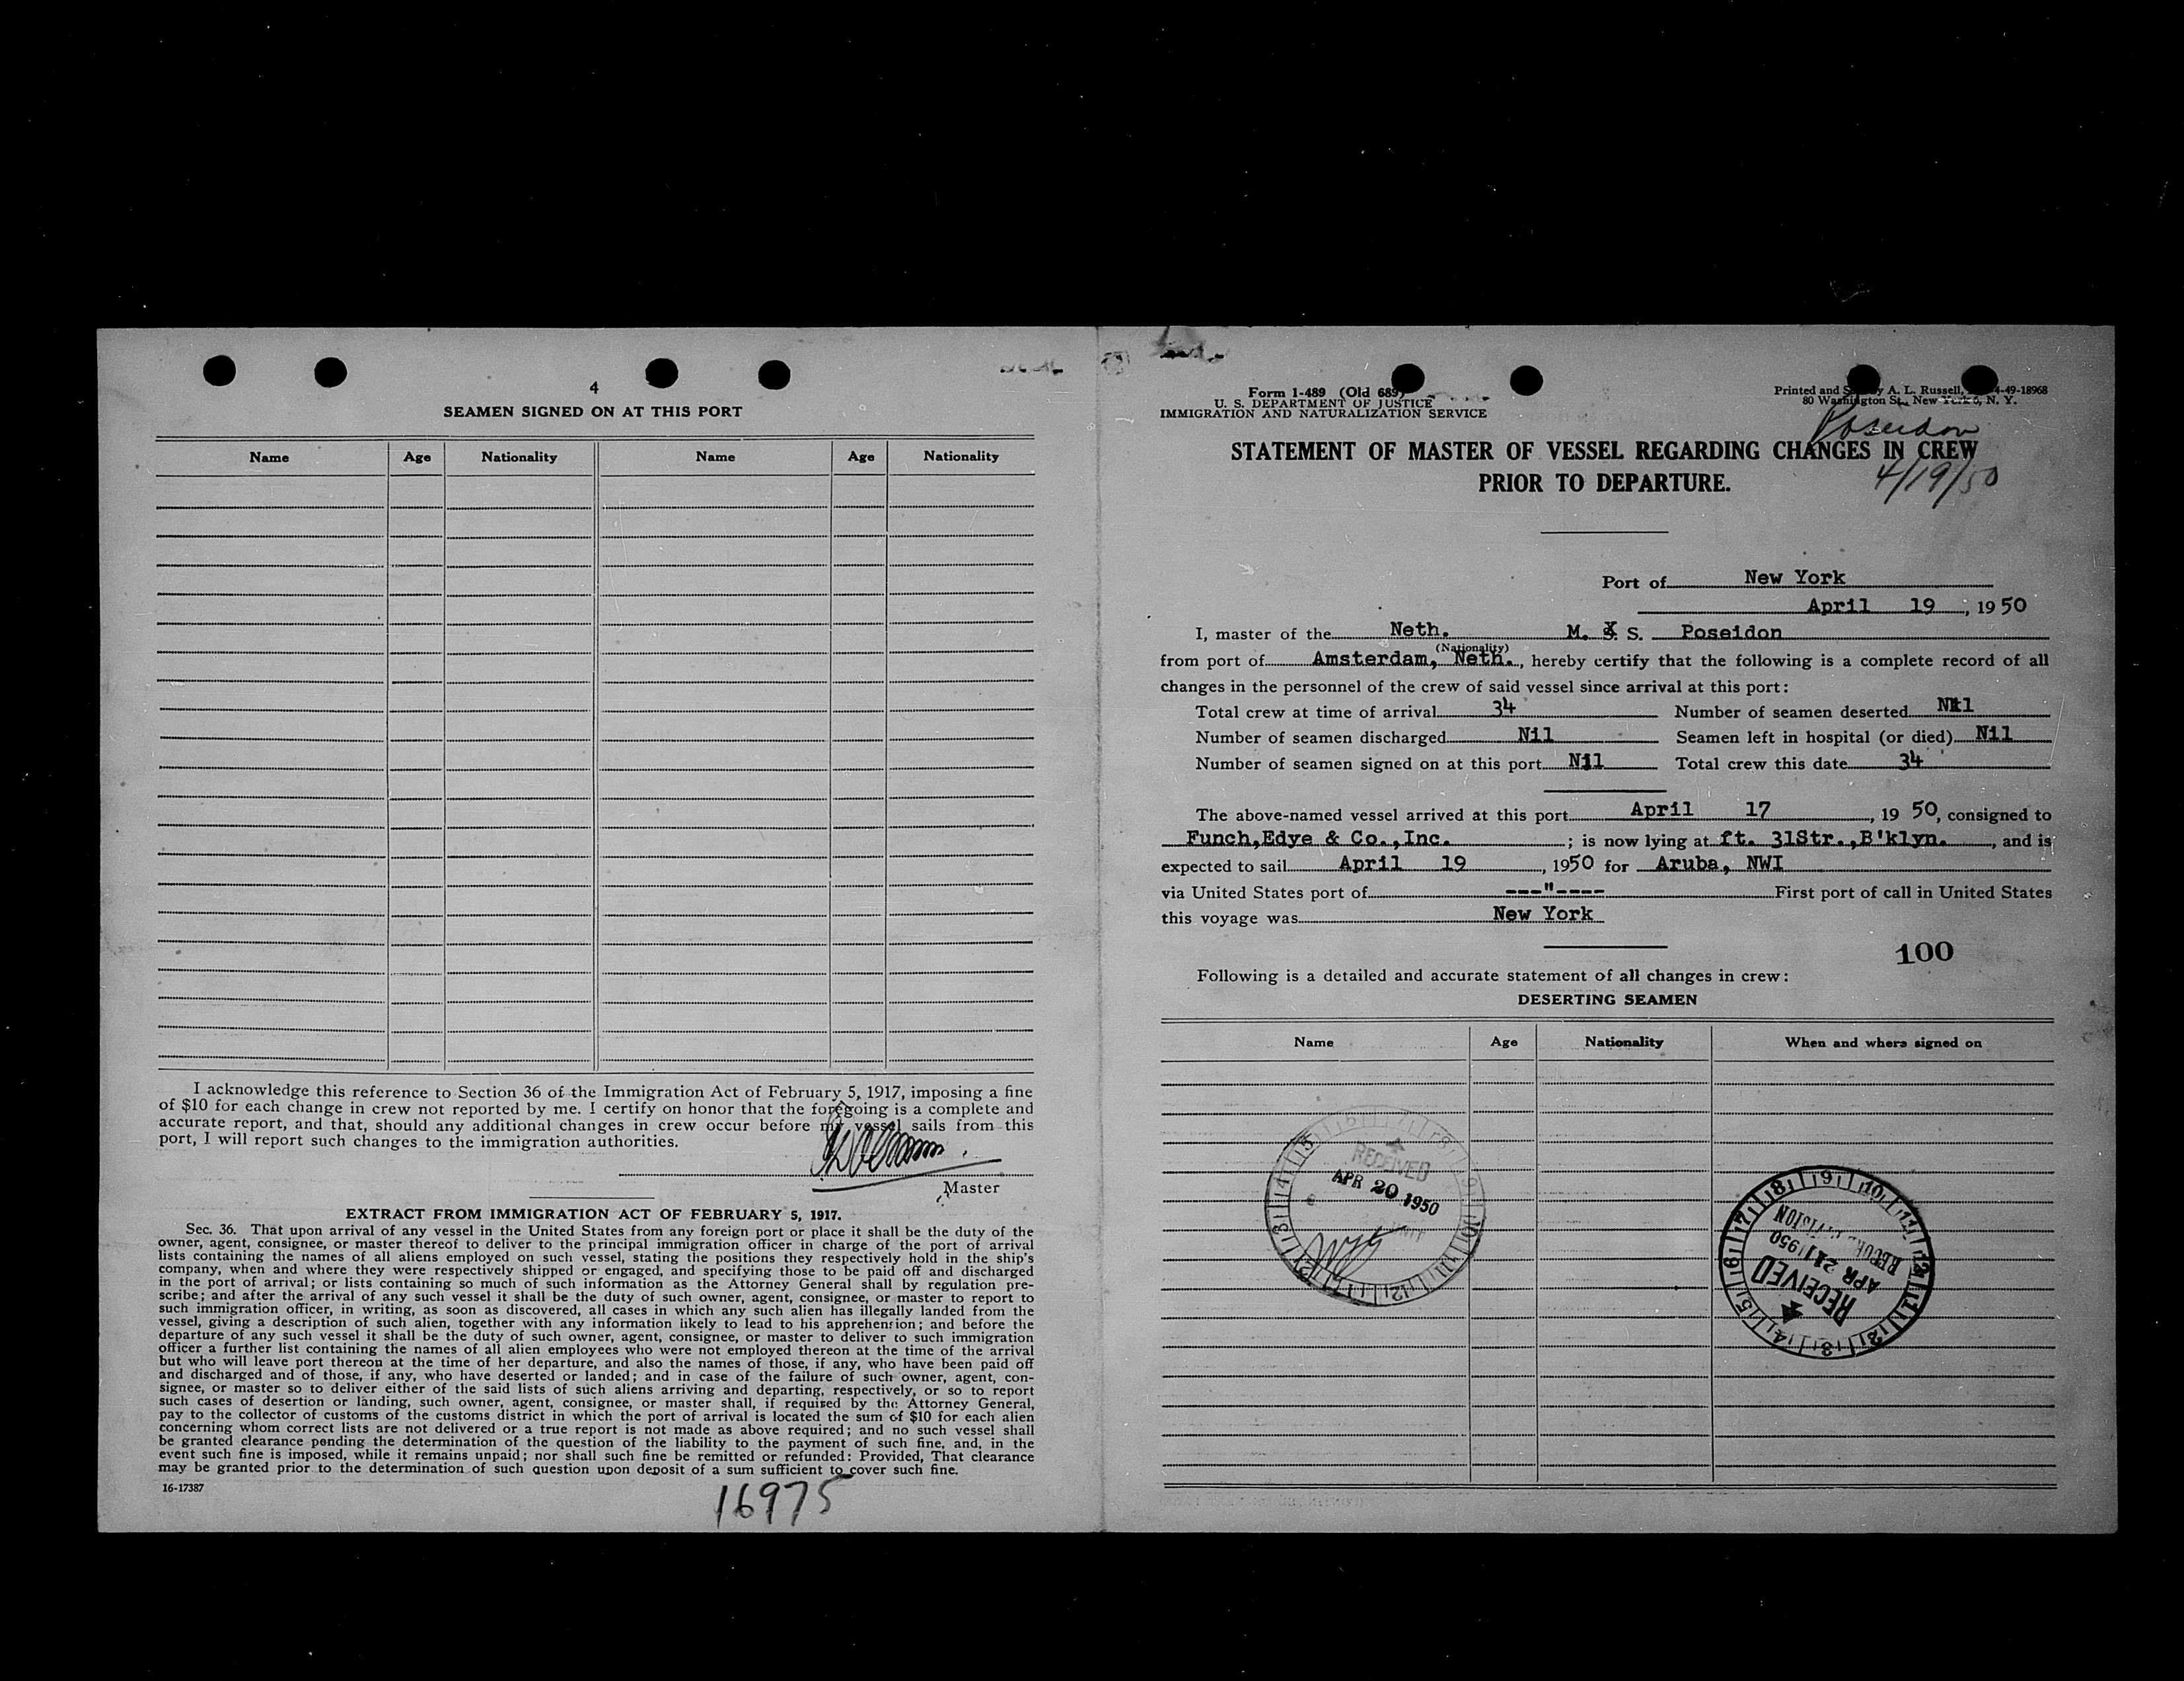 4
SEAMEN SIGNED ON AT THIS PORT
Name Age Nationality Name Age Nationality
I acknowledge this reference to Section 36 of the Immigration Act of February 5, 1917, imposing a fine
of $10 for each change in crew not reported by me. I certify on honor that the foregoing is a complete and
accurate report, and that, should any additional changes in crew occur before my vessel sails from this
port, I will report such changes to the immigration authorities.
Master
EXTRACT FROM IMMIGRATION ACT OF FEBRUARY 5, 1917.
Sec. 36. That upon arrival of any vessel in the United States from any foreign port or place it shall be the duty of the
owner, agent, consignee, or master thereof to deliver to the principal immigration officer in charge of the port of arrival
lists containing the names of all aliens employed on such vessel, stating the positions they respectively hold in the ship's
company, when and where they were respectively shipped or engaged, and specifying those to be paid off and discharged
in the port of arrival; or lists containing so much of such information as the Attorney General shall by regulation pre-
scribe; and after the arrival of any such vessel it shall be the duty of such owner, agent, consignee, or master to report to
such immigration officer, in writing, as soon as discovered, all cases in which any such alien has illegally landed from the
vessel, giving a description of such alien, together with any information likely to lead to his apprehension; and before the
departure of any such vessel it shall be the duty of such owner, agent, consignee, or master to deliver to such immigration
officer a further list containing the names of all alien employees who were not employed thereon at the time of the arrival
but who will leave port thereon at the time of her departure, and also the names of those, if any, who have been paid off
and discharged and of those, if any, who have deserted or landed; and in case of the failure of such owner, agent, con-
signee, or master so to deliver either of the said lists of such aliens arriving and departing, respectively, or so to report
such cases of desertion or landing, such owner, agent, consignee, or master shall, if required by the Attorney General,
pay to the collector of customs of the customs district in which the port of arrival is located the sum of $10 for each alien
concerning whom correct lists are not delivered or a true report is not made as above required; and no such vessel shall
be granted clearance pending the determination of the question of the liability to the payment of such fine, and, in the
event such fine is imposed, while it remains unpaid; nor shall such fine be remitted or refunded: Provided, That clearance
may be granted prior to the determination of such question upon deposit of a sum sufficient to cover such fine.
16-17387
16975
Form 1-489 (Old 689)
U. S. DEPARTMENT OF JUSTICE
IMMIGRATION AND NATURALIZATION SERVICE
Printed and A. L. Russell, 4-49-18968
80 Washington St., New York 6, N. Y.
Poseidon
STATEMENT OF MASTER OF VESSEL REGARDING CHANGES IN CREW
PRIOR TO DEPARTURE.
4/19/50
Port of New York
April 19, 1950
I, master of the Neth. M. S. S. Poseidon
(Nationality)
from port of Amsterdam, Neth., hereby certify that the following is a complete record of all
changes in the personnel of the crew of said vessel since arrival at this port:
Total crew at time of arrival 34 Number of seamen deserted Nil
Number of seamen discharged Nil Seamen left in hospital (or died) Nil
Number of seamen signed on at this port Nil Total crew this date 34
The above-named vessel arrived at this port April 17, 1950, consigned to
Funch,Edye & Co.,Inc.; is now lying at ft. 31Str.,B'klyn., and is
expected to sail April 19, 1950 for Aruba, NWI
via United States port of ---"---- First port of call in United States
this voyage was New York
100
Following is a detailed and accurate statement of all changes in crew:
DESERTING SEAMEN
Name Age Nationality When and where signed on
RECEIVED
APR 20 1950
RECEIVED
APR 21 1950
DIVISION